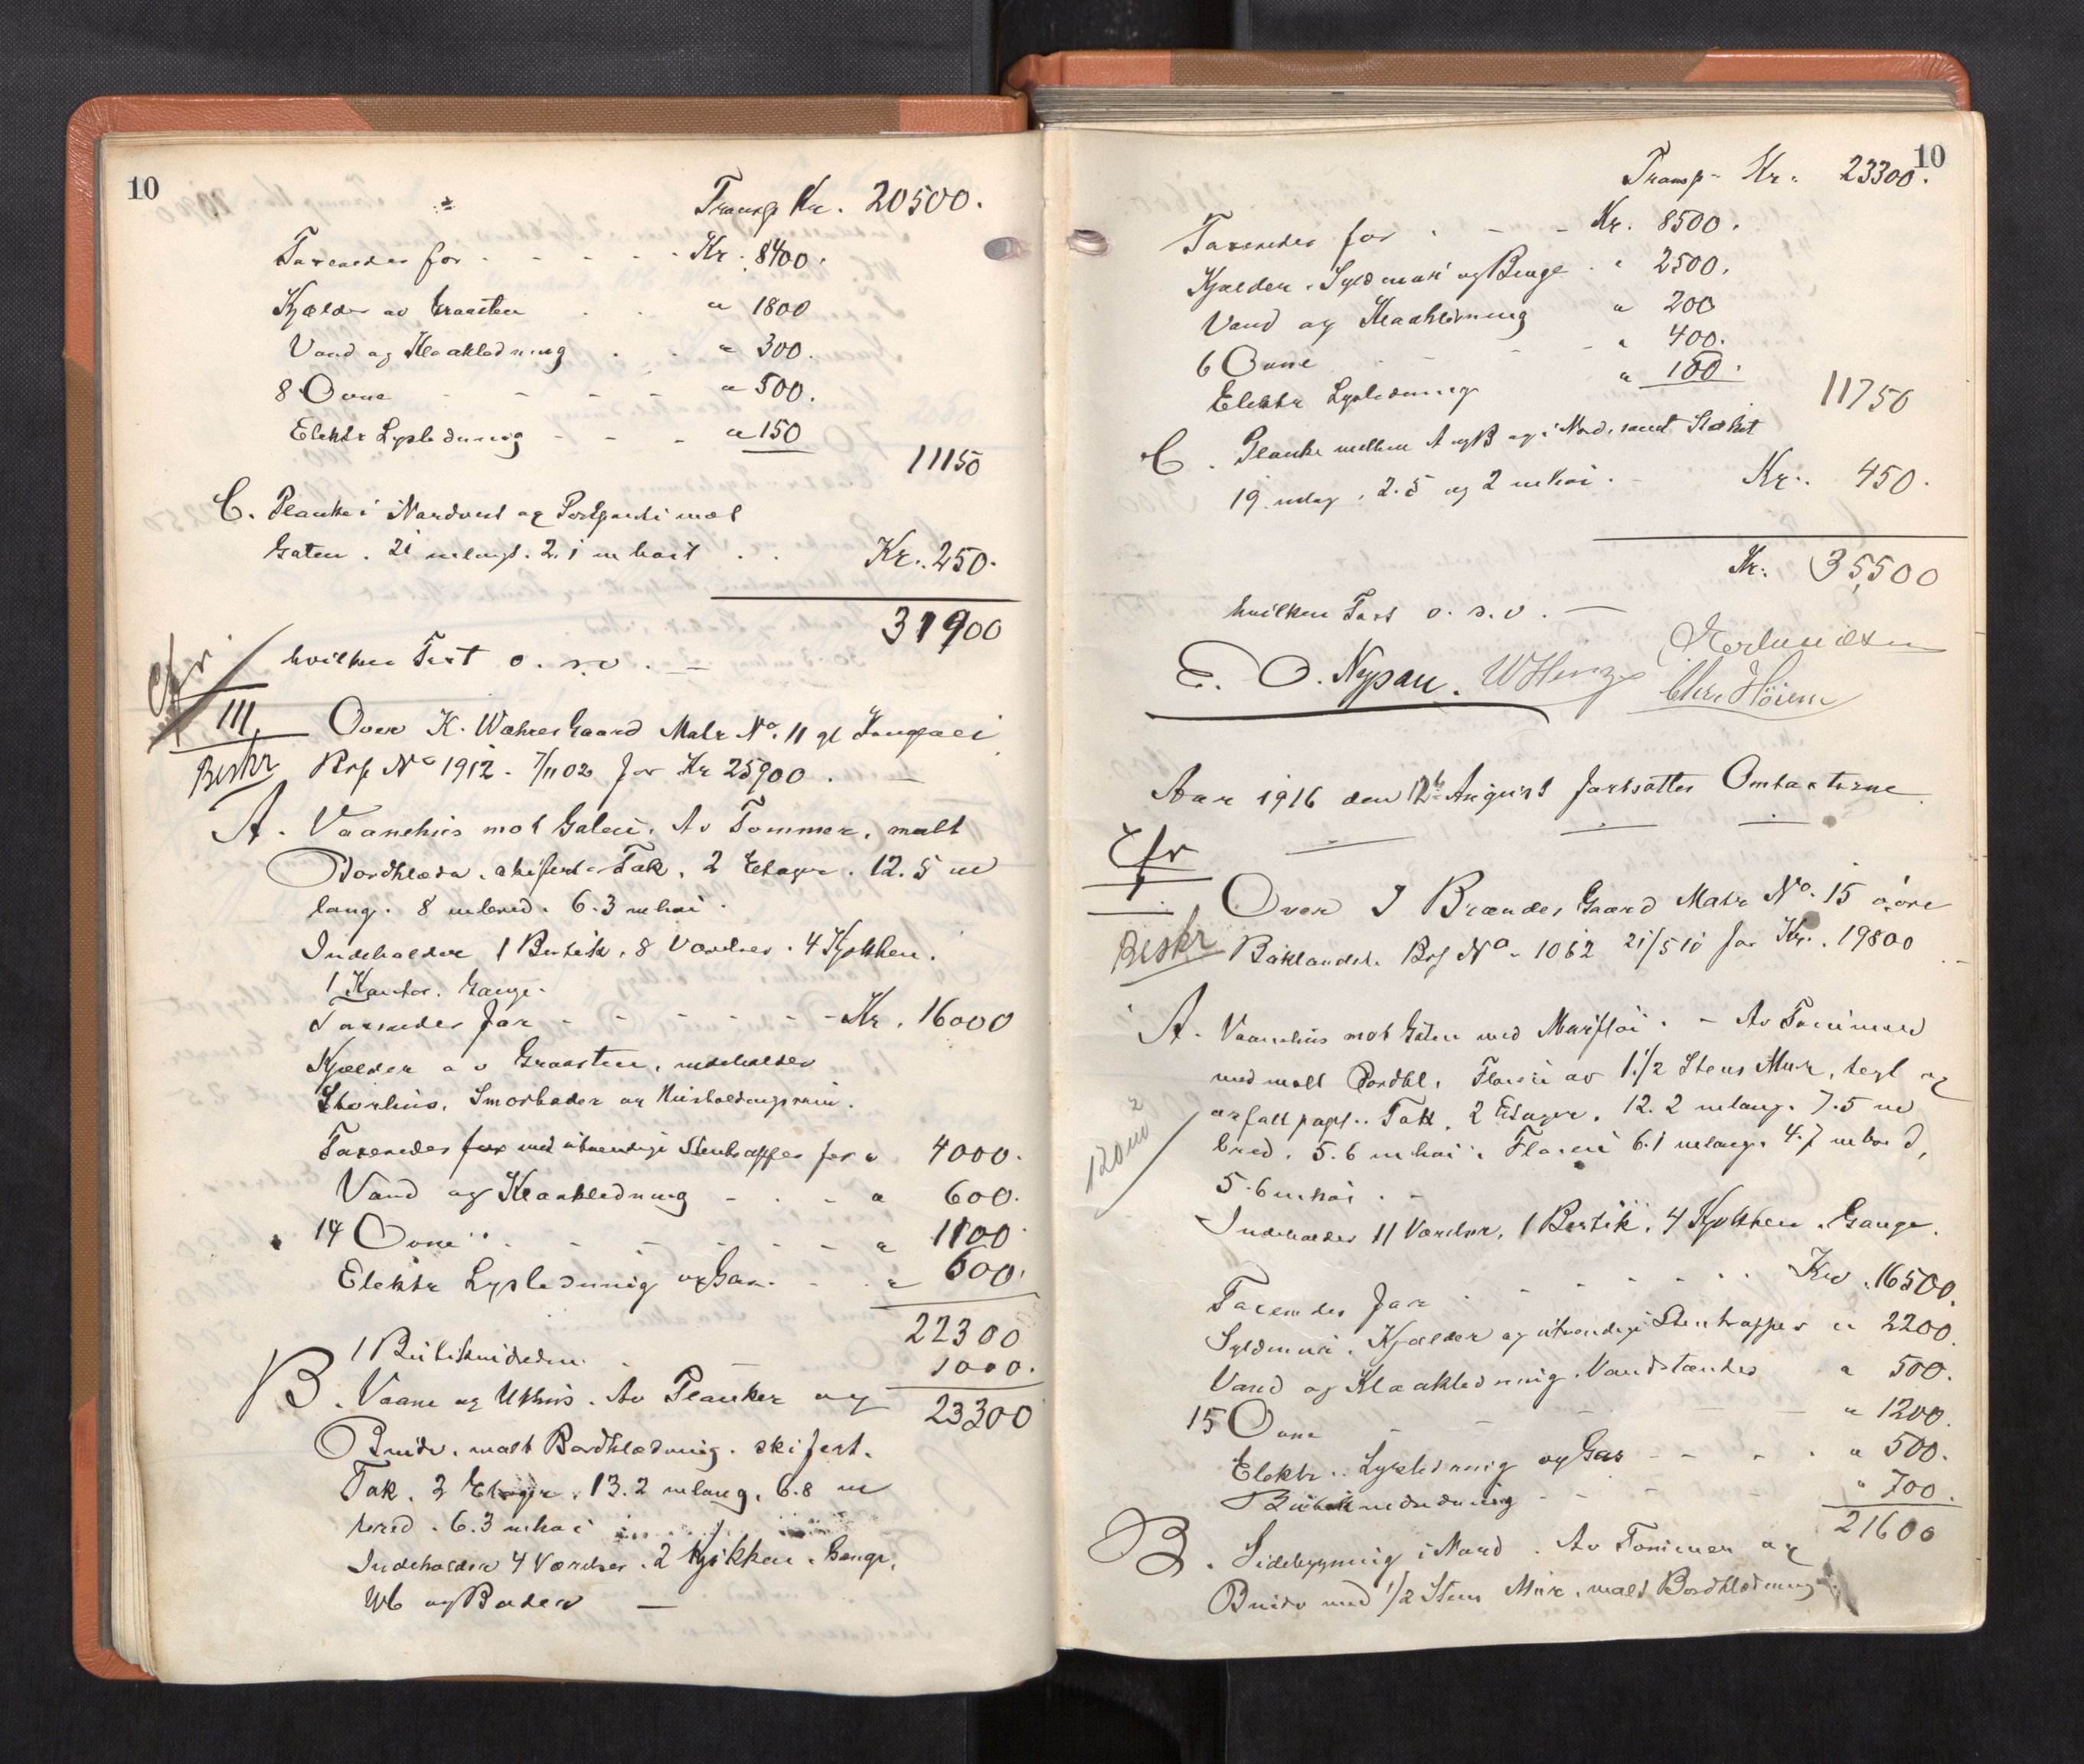 10
Transp Kr. 20500.
Taxeredes for - - - - - Kr. 8400.
Kjælder av Graasten . . " 1800
Vand og Kloakledning . . " 300.
8 Ovne - - - - " 500.
Elektr Lysledning - - - " 150
11150
C. Planke i Nordvest og Portparti mot
Gaten. 21 m lang. 2.1 m høit . . Kr. 250.
31900
hvilken Taxt o. s. v. —
Cfr
III
Over K. Wahres Gaard Matr No. 11 gl
Beskr
Brf No 1912 - 7/11 02 for Kr 25900. —
A. Vaanehus mot Gaten. Av Tømmer, malt
Bordklædn. skifert. Tak, 2 Etager. 12.5 m
lang. 8 m bred. 6.3 m høi.
Indeholder 1 Butik, 8 Værelser. 4 Kjøkken.
1 Kontor. Gange.
Taxeredes for - - - - - - Kr. 16000
Kjælder av Graasten, indeholder
Storhus, Smørboder og Husholdningsrum.
Taxeredes for med utvendige Stentrapper for " 4000.
Vand og Kloakledning - - - " 600.
14 Ovne - - - - - - " 1100
Elektr Lysledning og Gas. - - " 600.
22300
1 Butikindredn. 1000.
B. Vaane og Uthus. Av Planker og 23300
Bindv. malt Bordklædning. skifert.
Tak. 2 Etager. 13.2 m lang. 6.8 m
bred. 6.3 m høi
Indeholder 4 Værelser. 2 Kjøkken. Gange.
Wc og Boder —
10
Transp - Kr. 23300.
Taxeredes for . - - - Kr. 8500.
Kjælder. Syldmur og Beuge . " 2500.
Vand og Kloakledning " 200
6 Ovne - - - " 400.
Elektr Lysledning " 150.
11750
C. Planke mellem A og B og i Nord, samt Stakit
19 m lag, 2.5 og 2 m høi. - Kr. 450.
Kr. 35500
hvilken Taxt o. s. v. —
E. O. Nypan. Chr Høiem
Aar 1916 den 12te August fortsattes Omtaxterne
Cfr
I
Over J Brandes Gaard Matr No. 15 øvre
Beskr
Baklandet. Brf No. 1062 21/5 10 for Kr. 19800 —
A. Vaanehus mot Gaten med Mursfløi. - Av Tømmer
med malt Bordkl. Fløien av 1 1/2 Stens Mur, tegl og
asfalt papt. Tak, 2 Etager. 12.2 m lang. 7.5 m
bred. 5.6 m høi. Fløien 6.1 m lang. 4.7 m bred,
5.6 m høi. -
120 m2
Indeholder 11 Værelser, 1 Butik, 4 Kjøkken. Gange.
Taxeredes for - - - - Kr. 16500.
Syldmur. Kjælder og utvendige Stentrapper " 2200.
Vand og Kloakledning. Vandklosetter " 500.
15 Ovne - - - - " 1200.
Elektr. Lysledning og Gas - - - . " 500.
Butikindredning - - - - " 700.
21600
B. Sidebygning i Nord. Av Tømmer og
Bindv med 1/2 Stens Mur, malt Bordklædning